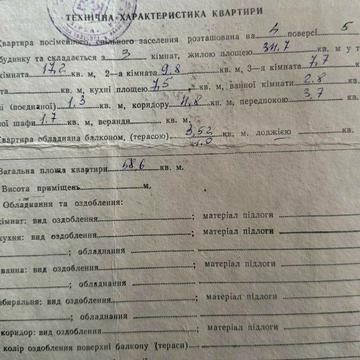 ТЕХНІЧНА ХАРАКТЕРИСТИКА КВАРТИРИ
Квартира посімейного, спільного заселення розташована на 4 поверсі 5
будинку та складається з 3 кімнат, жилою площею 34,7 кв. м у т
кімната 17,2 кв. м, 2—а кімната 9,8 кв. м, 3—я кімната 7,7
та кв. м, кухні площею 7,5 кв. м, ванної кімнати 2.8
і (поєднаної) 1,3 кв. м, коридору 4,8 кв. м, передпокою 3,7
ої шафи 1.7 кв. м, веранди кв. м.
Квартира обладнана балконом, (терасою) 3,52 кв. м, лоджією кв.
Загальна площа квартири 58,6 кв. м.
Висота приміщень м,
Обладнання та оздоблення:
кімнат: вид оздоблення ; матеріал підлоги
кухня: вид оздоблення ; матеріал підлоги
; обладнання
ванна: вид оздоблення ; матеріал підлоги
; обладнання
вбиральня: вид оздоблення ; матеріал підлоги
; обладнання
коридор: вид оздоблення ; матеріал підлоги
колір оздоблення поверхні балкону (тераси)